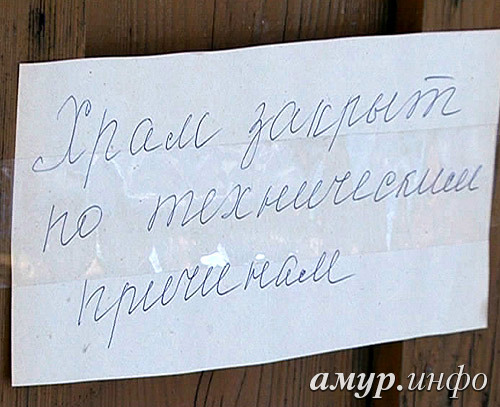 Храм закрыт
по техническим
причинам
амур.инфо